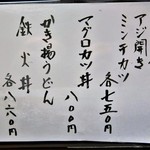 アジ開き
ミンチカツ
各七五〇円
マグロカツ丼
八〇〇円
かき揚うどん
鉄火丼
各八六〇円